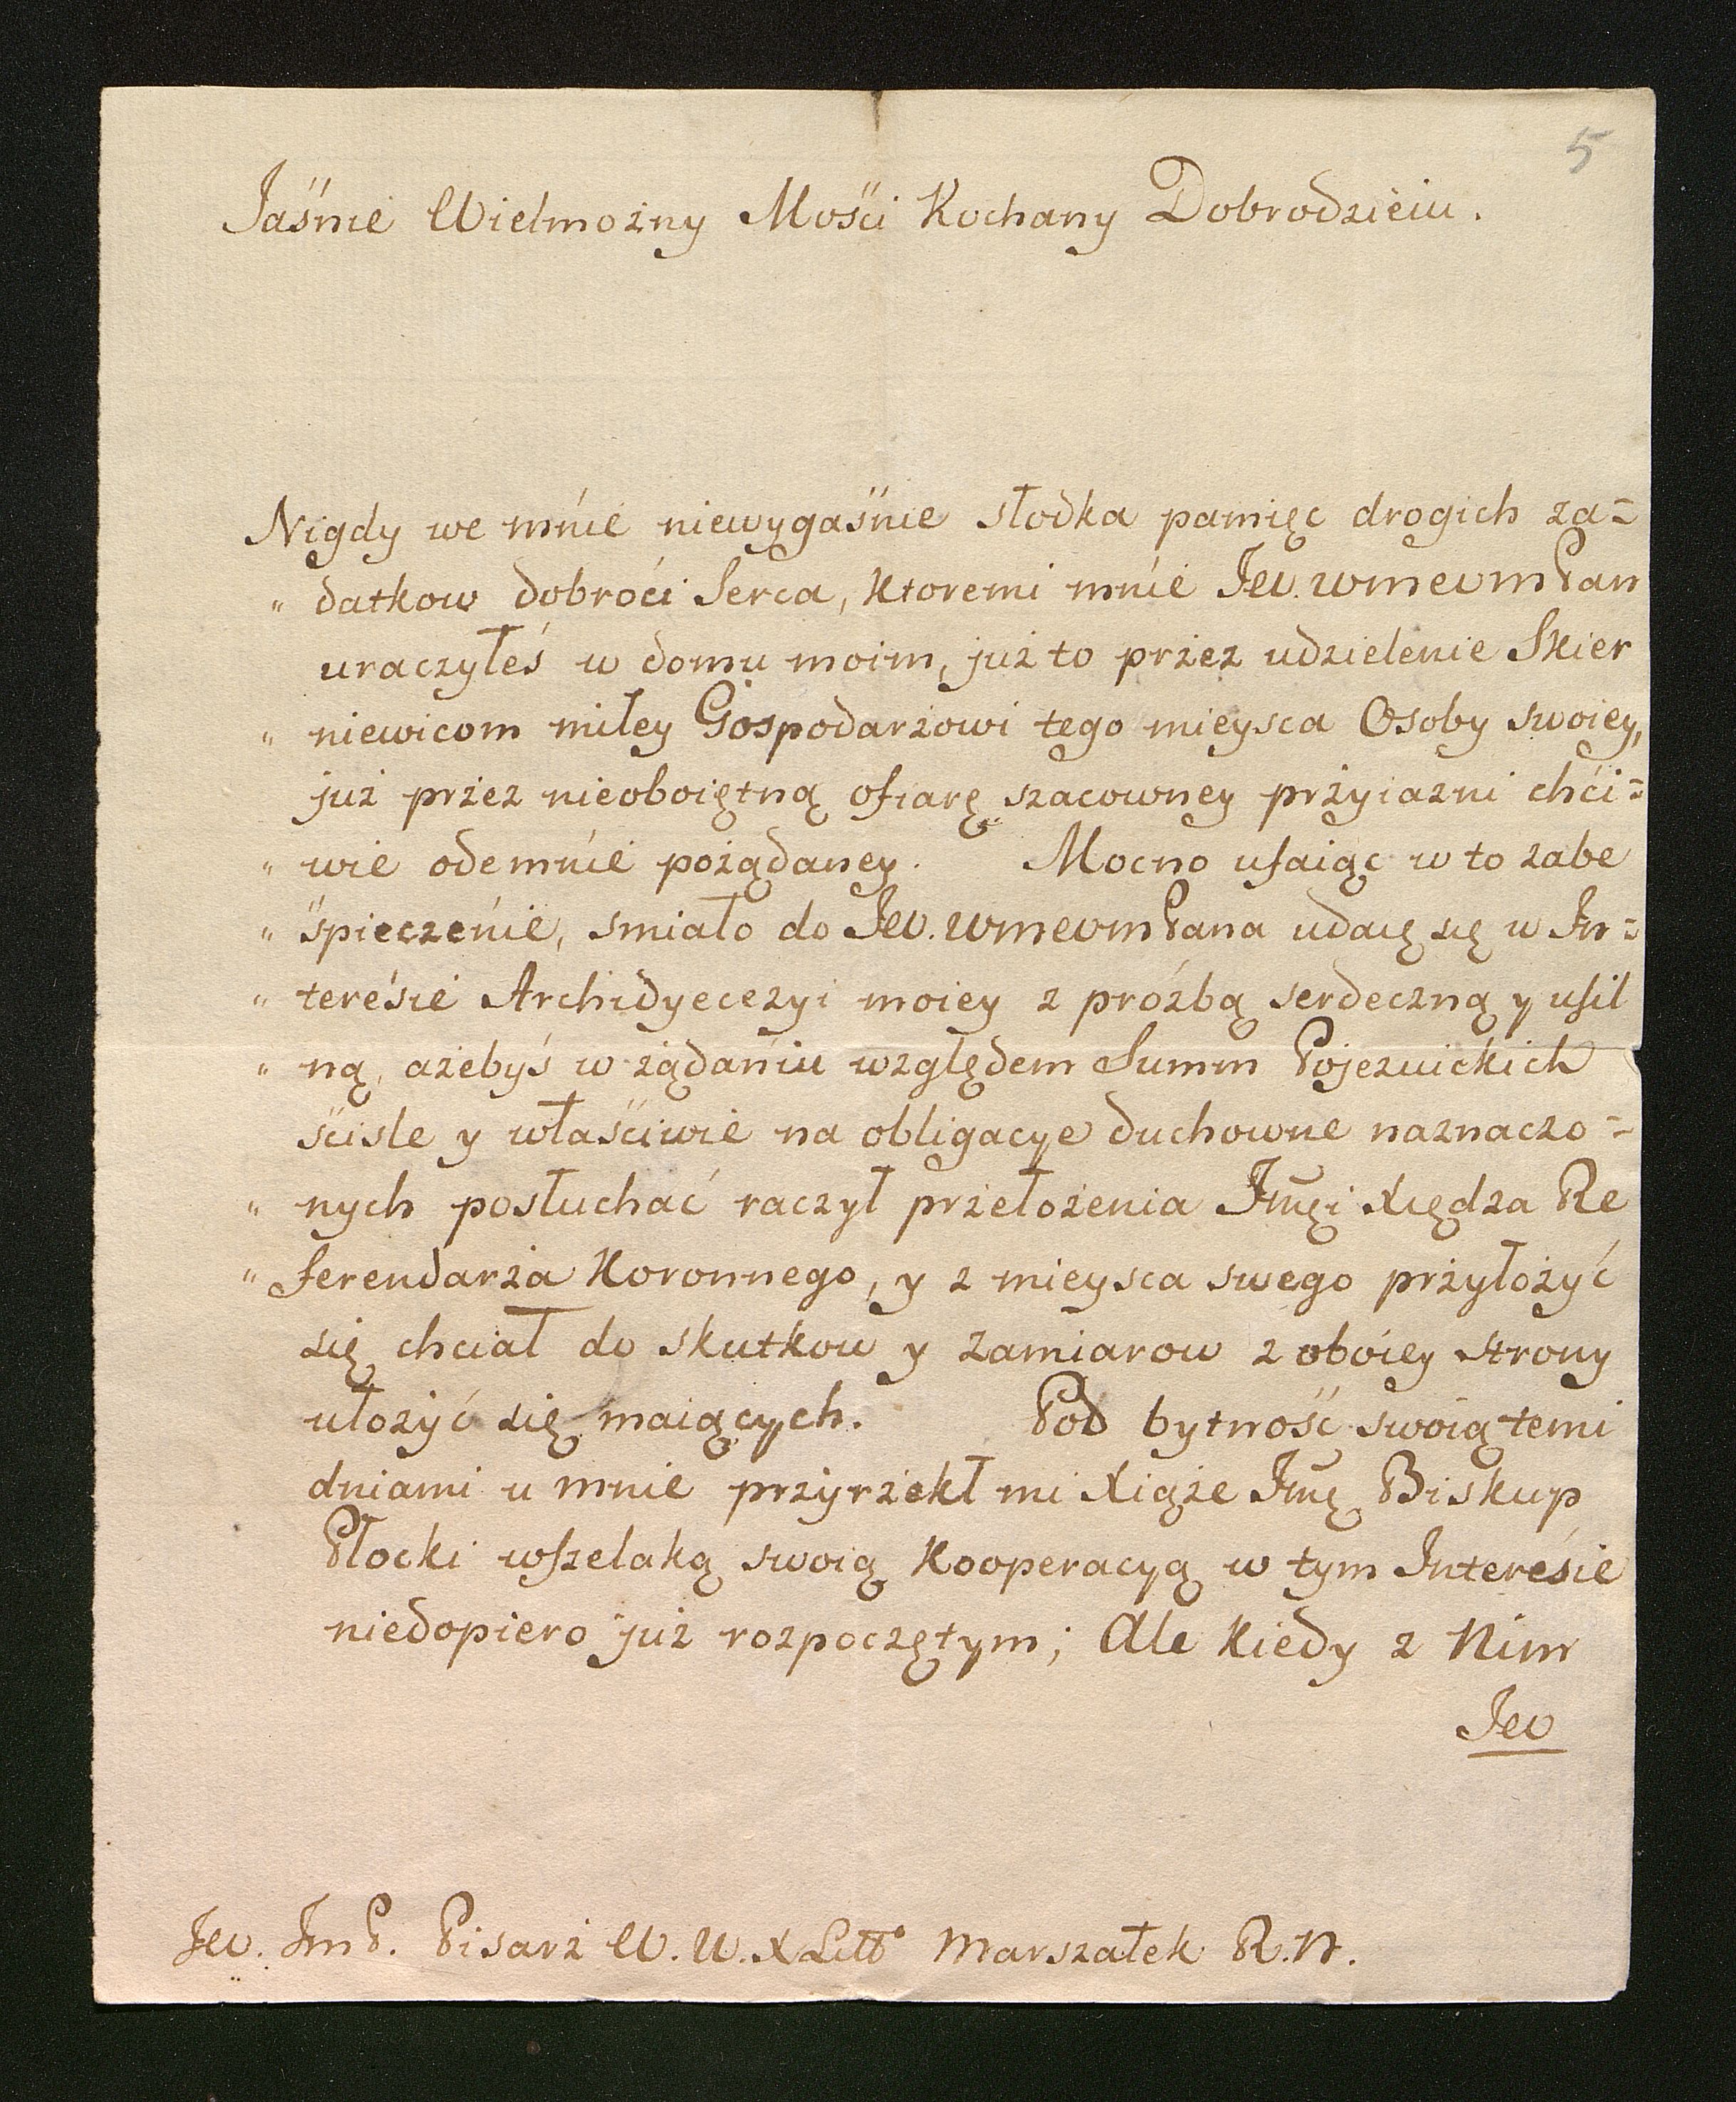 5
Jaśnie Wielmożny Mości Kochany Dobrodzieiu.
Nigdy we mnie niewygaśnie słodka pamięc drogich za=
„ datkow dobroci Serca, ktoremi mnie JW. WmcWmPan
uraczyłeś w domu moim, już to przez udzielenie Skier
„ niewicom miłey Gospodarzowi tego mieysca Osoby swoiey,
już przez nieoboiętną ofiarę szacowney przyiazni chci=
„ wie odemnie pożądaney. Mocno ufaiąc w to zabe
„ śpieczenie, smiało do JW. WmcWmPana udaię się w In=
„ teresie Archidyecezyi moiey z próżbą serdeczną y usil
„ ną, ażebyś w żądaniu względem Summ Pojezuickich
ściśle y właściwie na obligacye duchowne naznaczo=
„ nych posłuchać raczył przełożenia Jmci Xiędza Re
„ ferendarza Koronnego, y z mieysca swego przyłożyć
się chciał do skutkow y zamiarow z obóiey strony
ułożyć się maiących. Pod bytność swoią temi
dniami u mnie przyrzekł mi Xiąże Jmć Biskup
Płocki wszelaką swoią Kooperacyą w tym Interesie
niedopiero już rozpoczętym; Ale kiedy z Nim
JW
JW. JmP. Pisarz W. W. X Litt° Marszałek R. N.